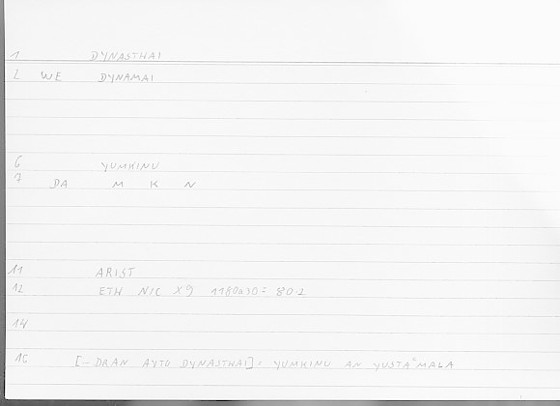 1 DYNASTHAI
2 WE DYNAMAI
6 YUMKINU
7 DA M K N
11 ARIST
12 ETH NIC X9 1180a30 = 80.2
14
15 [– DRAN AYTO DYNASTHAI] < YUMKINU AN YUSTA'MALA